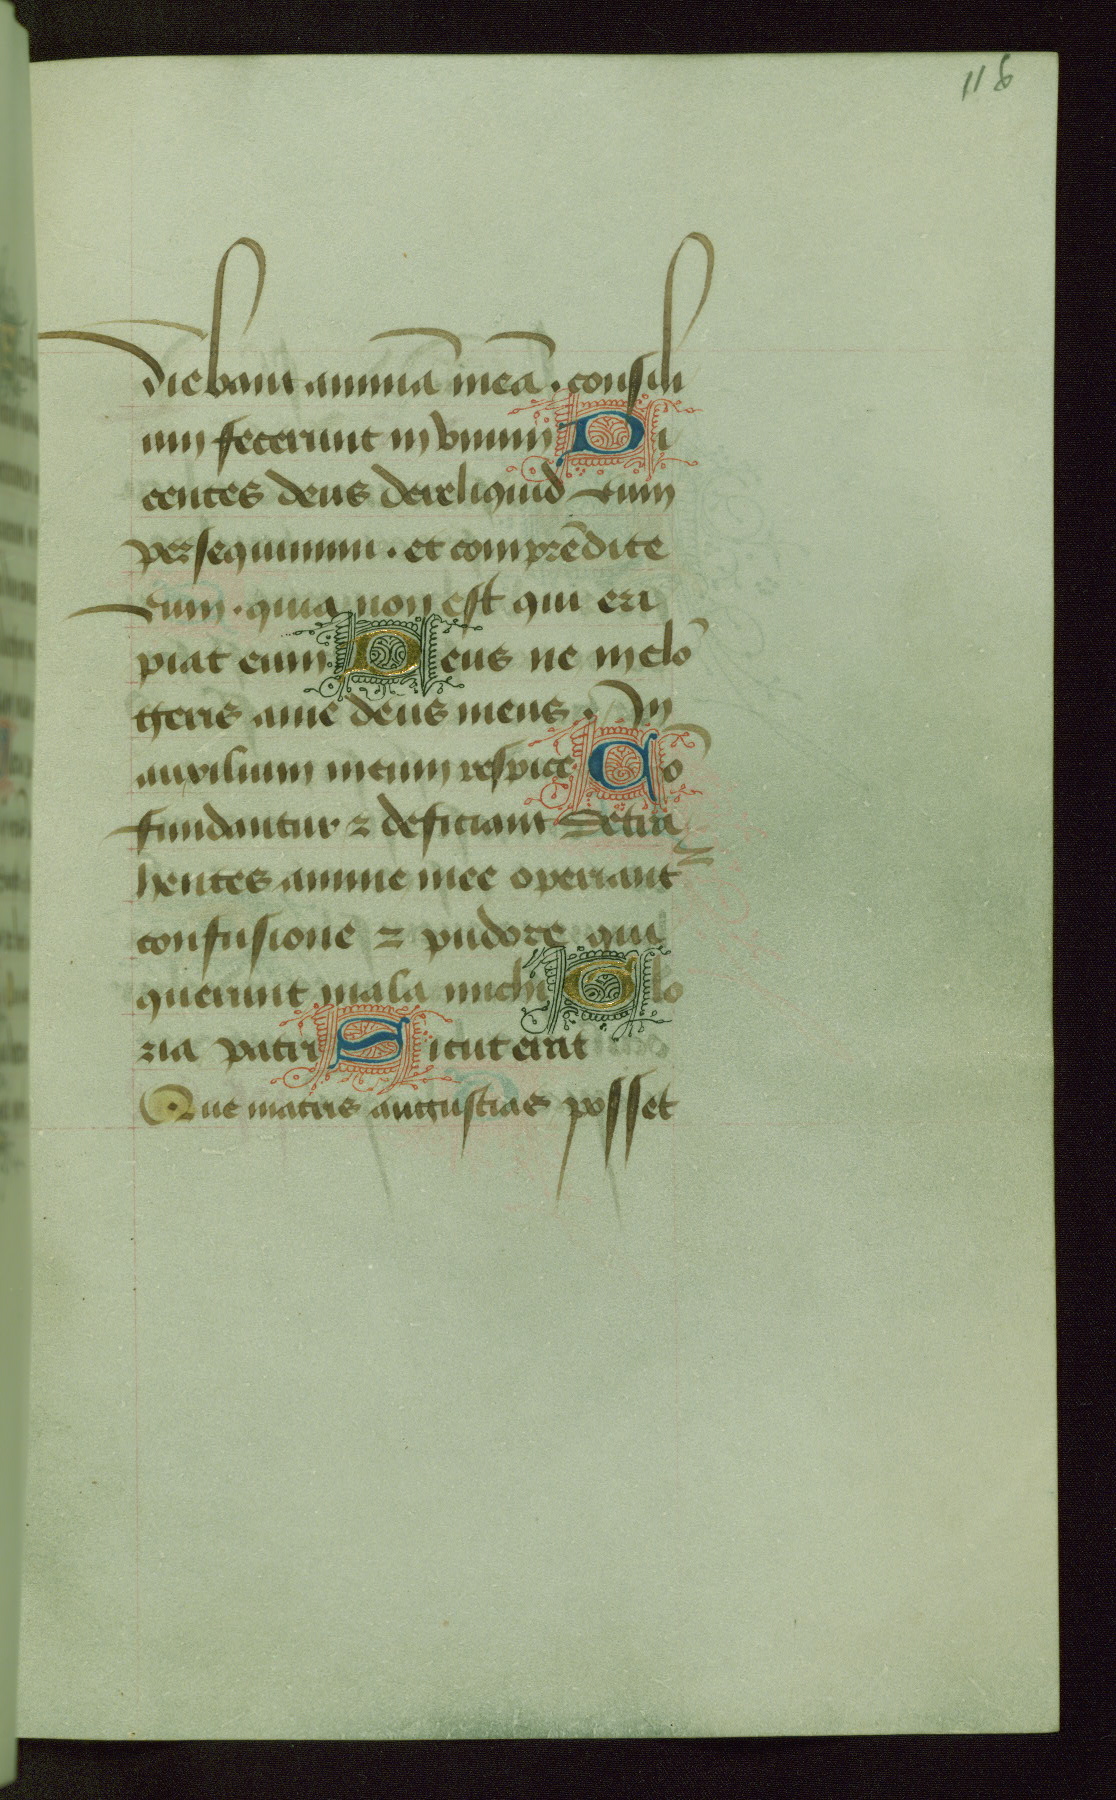 118
diebant animā meā. consili
um fecerunt in vnum Di
centes deus dereliquid eum
persequimini. et comprēdite
eum. quia non est qui eri
piat eum Deus ne in elō
geris a me deus meus. In
auxilium meum respice Cō
fundantur ⁊ deficiant detra
hentes anime mee operiant᷑
confusione ⁊ pudore qui
querunt mala michi Glo
ria patri Sicut erat
Que matris angustias posset